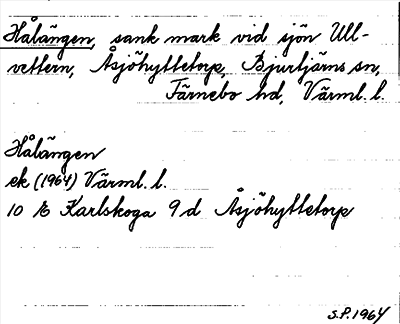 Hålängen, sank mark vid sjön Ull-
vettern, Åsjöhyttetorp, Bjurtjärns sn,
Färnebo hd, Värml. l.
Hålängen
ek (1964) Värml. l.
10 E Karlskoga 9 d Åsjöhyttetorp
S.P. 1964